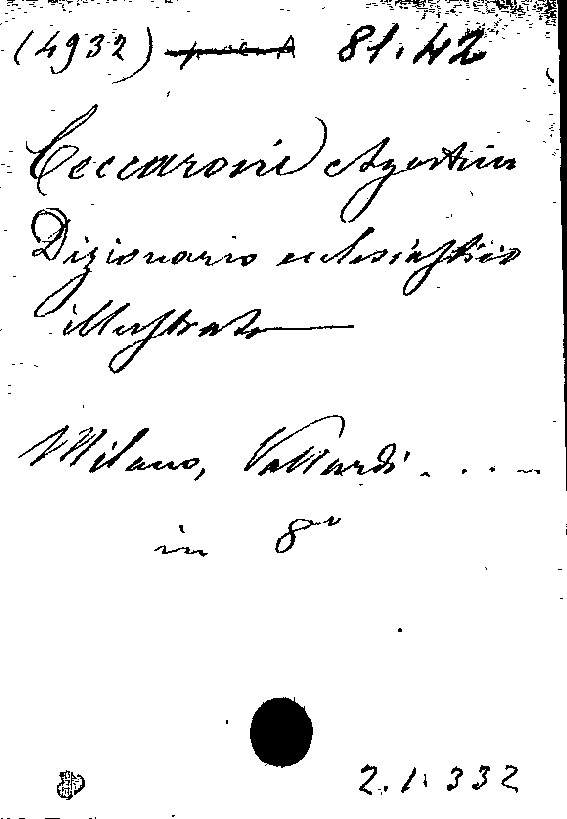 (4932) 81.42
Ceccaroni Agostino
Dizionario ecclesiastico
illustrato
Milano, Vallardi . . . .
in 8°
2.1.332